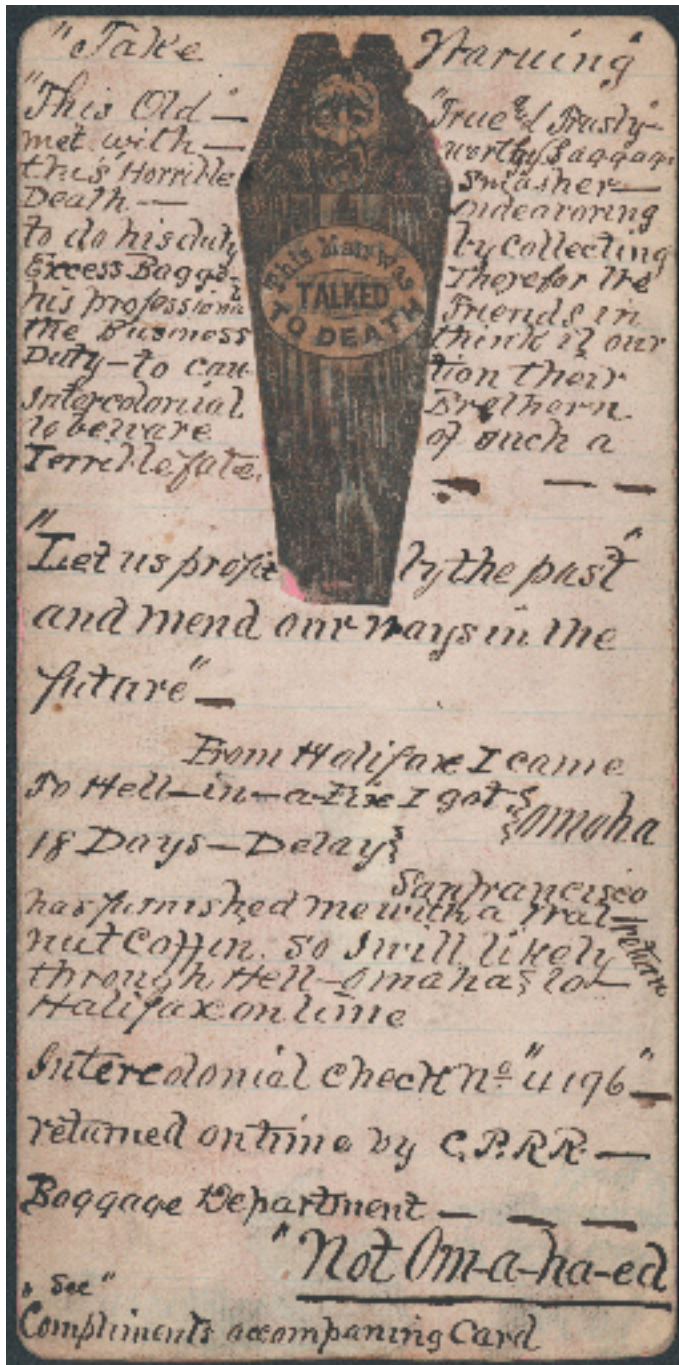 "Take Warning"
"This Old"— "True & Trusty"
met with— worthy Baggage
this Horrible Smasher—
Death— endeavoring
to do his duty by Collecting
Excess Bagg— Therefor the
his professional Friends in
the Business think it our
Duty—to cau tion their
Intercolonial Brethern
to beware of such a
Terrible fate. — — —
This Man Was
TALKED
TO DEATH
"Let us profit by the past"
and mend our ways in the
future"—
From Halifax I came
To Hell—in—a—Fix I got Omaha
18 Days—Delay
Sanfrancisco
has furnished me with a Wal
nut Coffin. So I will likely return
through Hell—Omaha to—
Halifax on time
Intercolonial Check No "4196"—
returned on time by C.P.R.R.—
Baggage Department— — —
"Not Om-a-ha-ed
"See"
Compliments accompaning Card